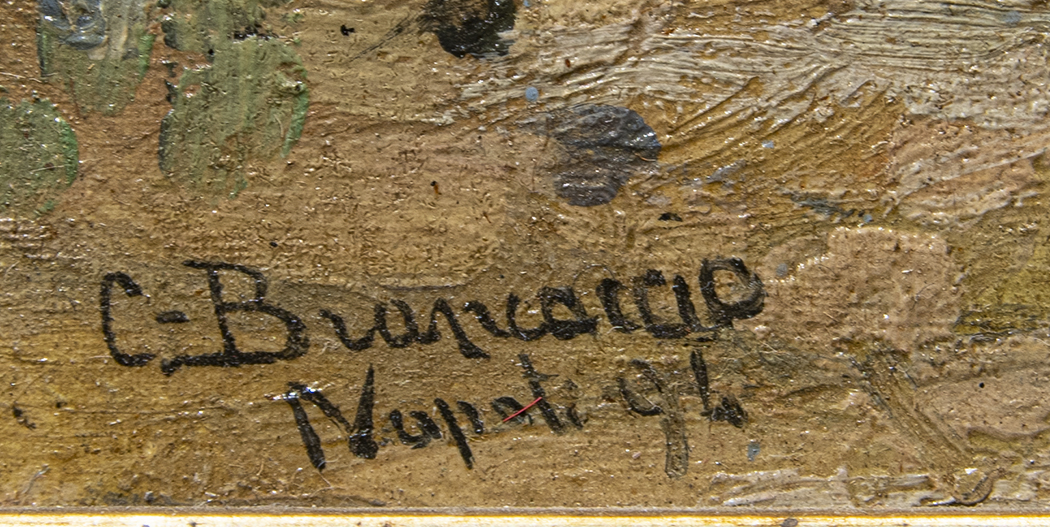 C-Brancaccio
Napoli